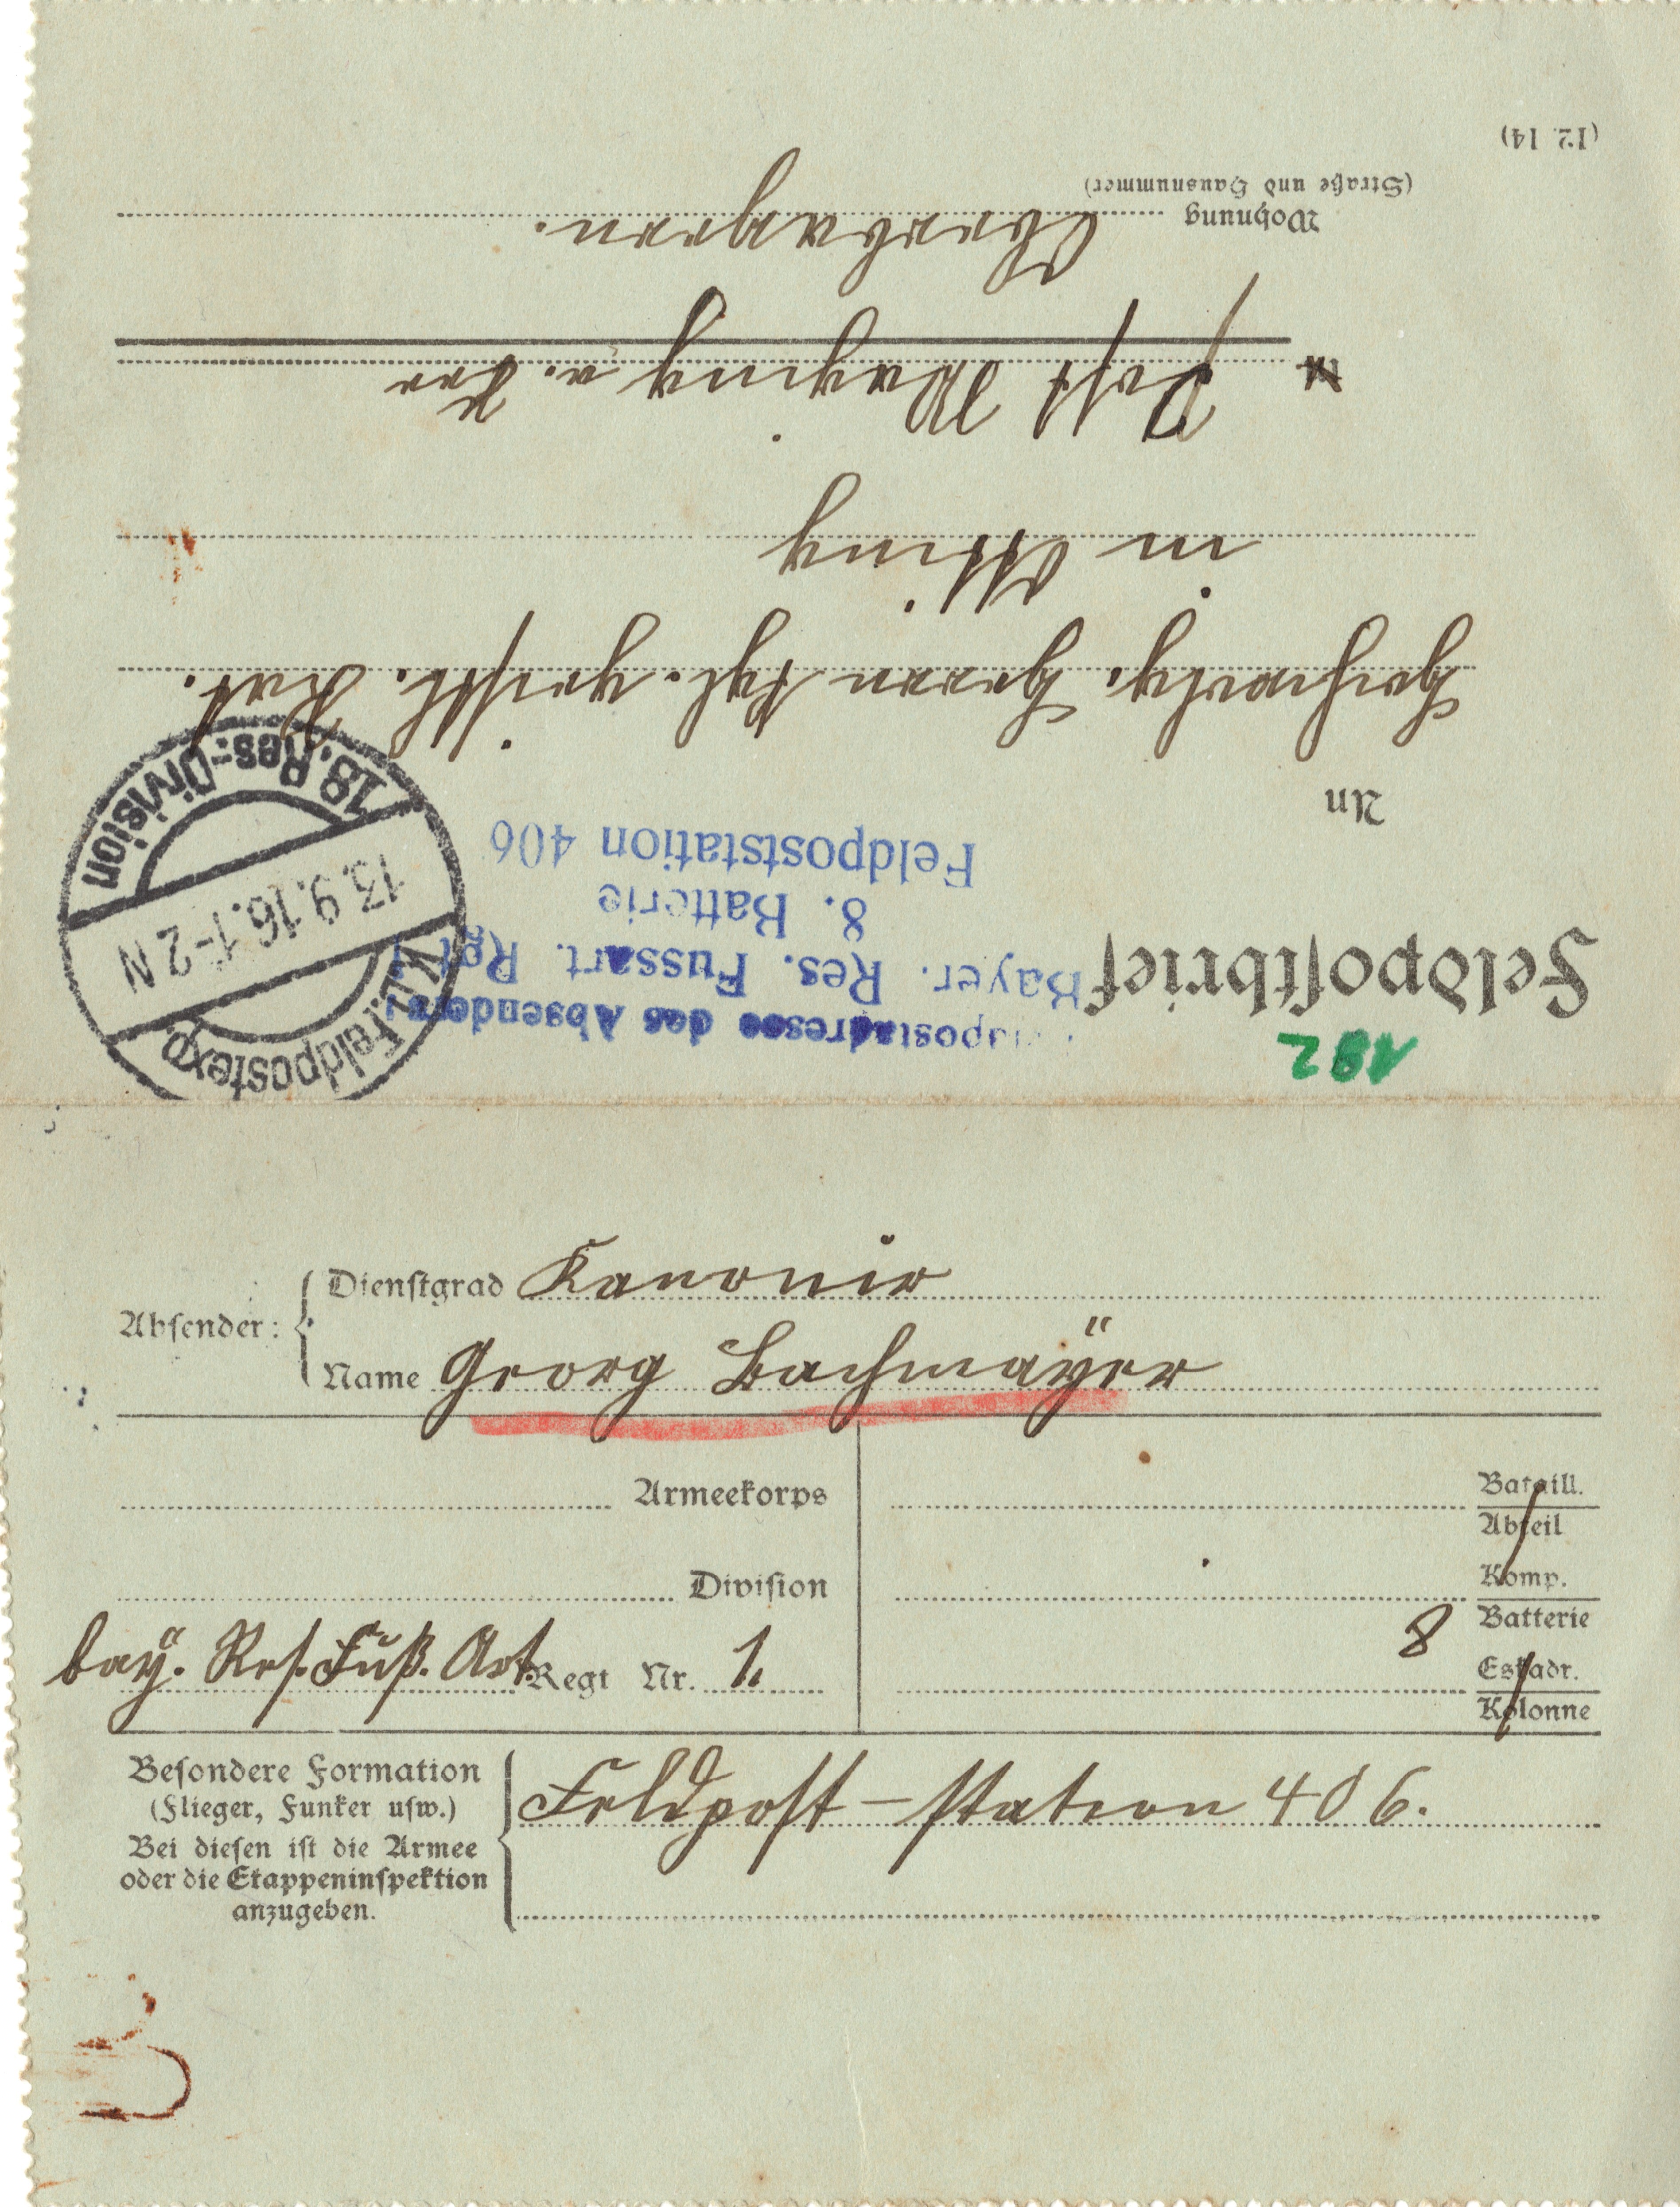 182
Feldpostbrief
Feldpostadresse des Absenders:
Bayer. Res. Fussart. Rgt. 1
8. Batterie
Feldpoststation 406
K.D. Feldpostexp.
13.9.16. 1-2 N
18. Res.-Division
An
Hochwürdg. Herrn kgl. geistl. Rat.
in Otting
Post Waging a. See
Oberbayern.
Wohnung
(Straße und Hausnummer)
(12. 14)
Absender:
Dienstgrad Kanonier
Name Georg Bachmayer
Armeekorps
Division
bay. Res. Fuß. Art. Regt Nr. 1.
Bataill.
Abteil
Komp.
8 Batterie
Eskadr.
Kolonne
Besondere Formation
(Flieger, Funker usw.)
Bei diesen ist die Armee
oder die Etappeninspektion
anzugeben.
Feldpost-station 406.